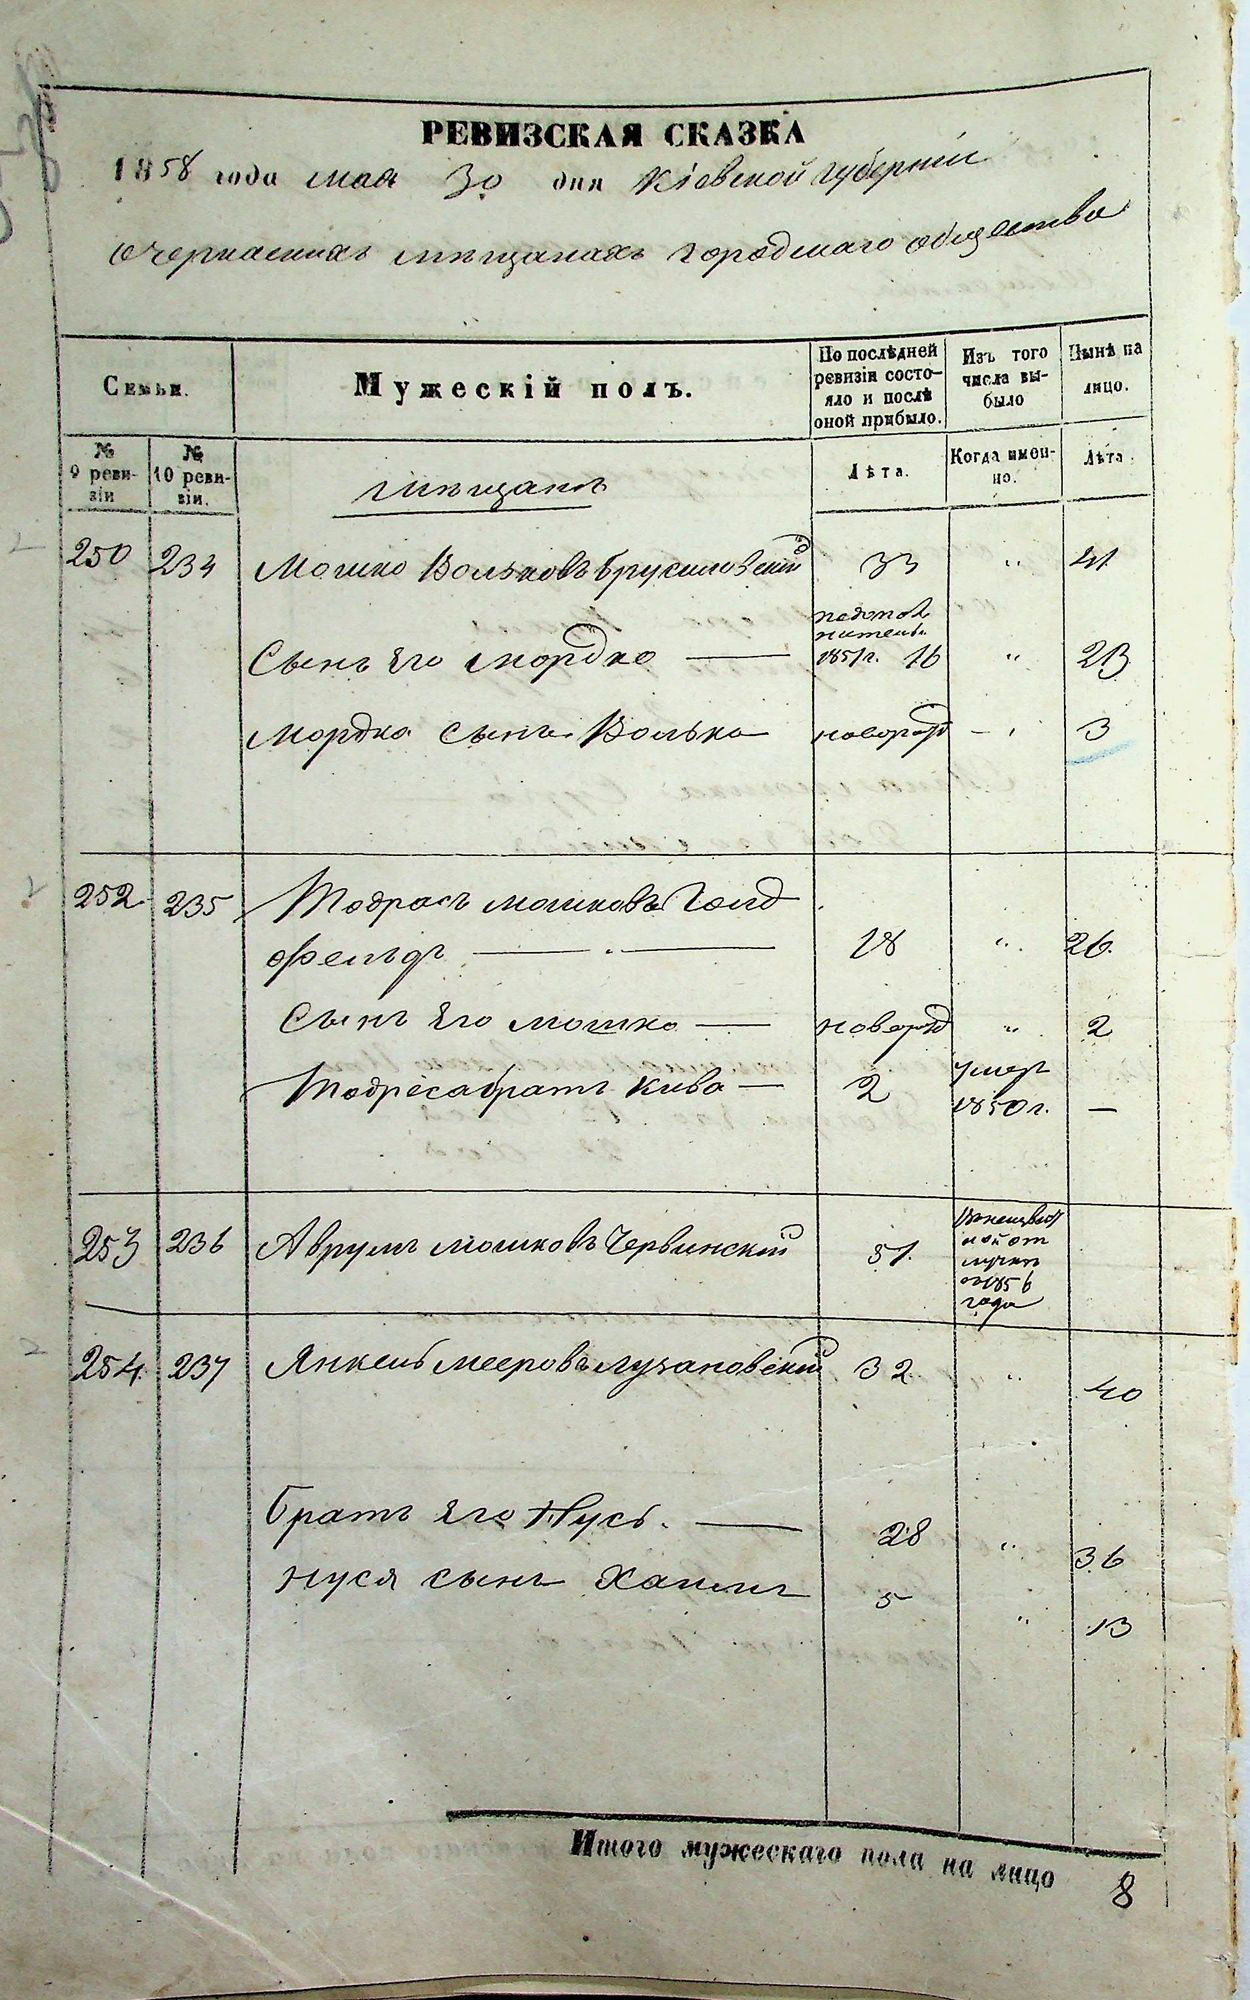 РЕВИЗСКАЯ СКАЗКА
1858 года мая 30 дня Кіевской губерніи
О черкаскихъ мѣщанахъ городскаго общества
Семьи.
Мужескій полъ.
По послѣдней ревизіи состояло и послѣ оной прибыло.
Изъ того числа выбыло
Нынѣ на лицо.
№ 9 ревизіи
№ 10 ревизіи.
мѣщанъ
Лѣта.
Когда именно.
Лѣта.
250 234 Мошко Вольковъ Брусиловскій 33 " 41
Сынъ его Мордко — 1851 г. 16 " 23
Мордка сынъ Волько новорожд — " 3
252 235 Тодрасъ Мошковъ Голд
фельдъ — 18 " 26.
Сынъ его Мошко — новорожд " 2
Тодреса братъ Кива — 2 умеръ 1850 г. —
253 236 Аврумъ Мошковъ Червинскій 51.
1856
года
254. 237 Янкель Мееровъ Лузановскій 32. " 40
Братъ его Нусь. — 28 " 36
Нуся сынъ Хаимъ 5 " 13
Итого мужескаго пола на лицо 8